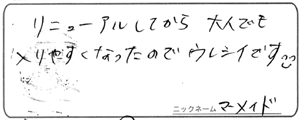 リニューアルしてから 大人でも
入りやすくなったので ウレシイです
ニックネーム マーメイド